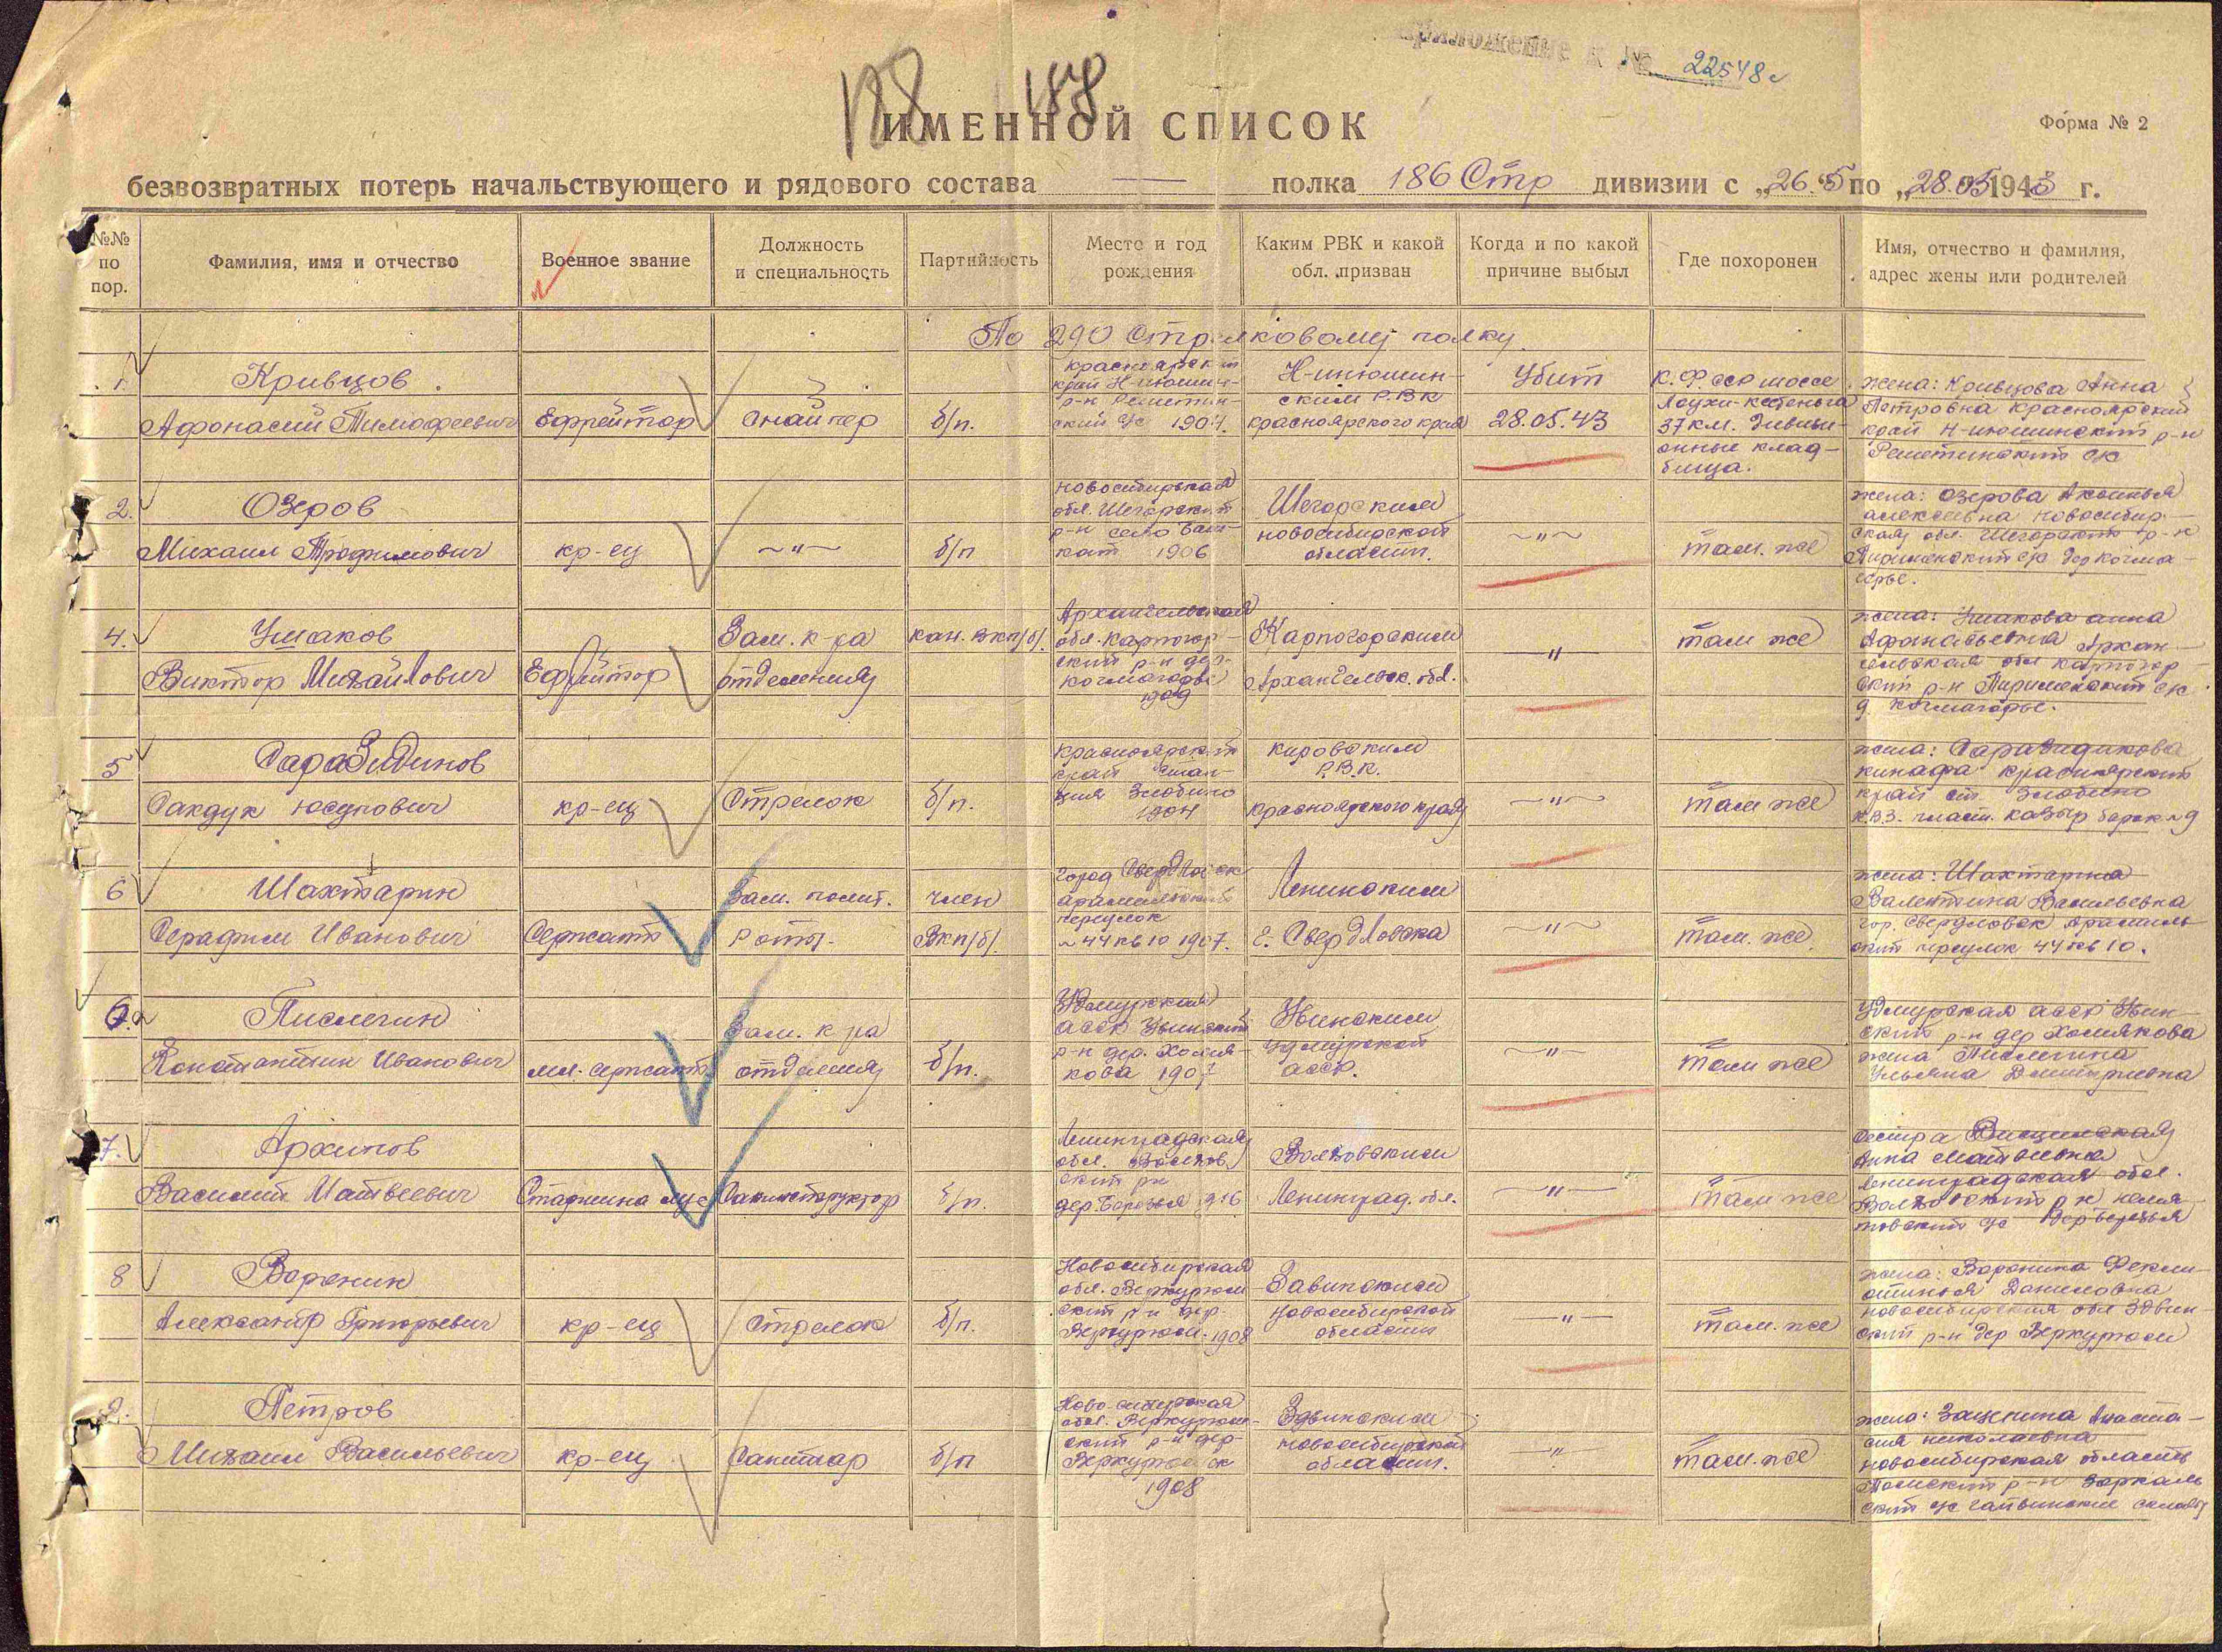 Приложение к № 22548с
188 188
ИМЕННОЙ СПИСОК
Форма № 2
безвозвратных потерь начальствующего и рядового состава — полка 186 Стр дивизии с „26.5 по „28.05 1943 г.
№№ по пор.
Фамилия, имя и отчество
Военное звание
Должность и специальность
Партийность
Место и год рождения
Каким РВК и какой обл. призван
Когда и по какой причине выбыл
Где похоронен
Имя, отчество и фамилия, адрес жены или родителей
По 290 Стрелковому полку.
1.
Кривцов
Афонасий Тимофеевич
Ефрейтор
Снайпер
б/п.
Красноярский
край
р-н
ский с/с 1904.
ским РВК
Красноярского края
Убит
28.05.43
К.Ф.ССР шоссе
Лоухи-Кестеньга
37 км. дивизи-
онные клад-
бища.
жена: Кривцова Анна
Петровна Красноярский
край р-н
Решетинский с/с
2.
Озеров
Михаил Трофимович
кр-ец
—"—
б/п
Новосибирская
обл. Шегарский
р-н село
1906
Шегарским
новосибирской
области.
—"—
там. же
жена: Озерова
алексеевна новосибир-
скай обл. Шегарский р-н
4.
Ушаков
Виктор Михайлович
Ефрейтор
Зам. к-ра
отделения
кан. ВКП/б/.
Архангельская
обл. Карпогор-
ский р-н дер.
кочмагорье
1909
Карпогорским
Архангельск. обл.
—"—
там же
жена: Ушакова анна
Афонасьевна Архан-
гельская обл карпогор-
ский р-н с/с
д. кочмагорье.
5
Саразидинов
Сакдук Юсупович
кр-ец
Стрелок
б/п.
Красноярский
край стан-
ция Злобино
1904
кировским
Р.В.К.
Красноярского края
—"—
там же
жена:
Красноярский
край ст. Злобино
6
Шахтарин
Серафим Иванович
Сержант
Зам. полит.
роты.
член
ВКП/б/.
город Свердловск
арамильский
переулок
№44 кв 10 1907.
Ленинским
г. Свердловска
—"—
там. же.
жена: Шахтарина
Валентина Васильевна
гор. Свердловск арамиль-
ский переулок 44 кв 10.
6.а
Пислегин
Константин Иванович
мл. сержант
Зам. к ра
отделения
б/п.
Удмурская
АССР Увинский
р-н дер. Хомя-
кова 1907
Увинским
Удмурской
АССР.
—"—
там же
Удмурская АССР Увин-
ский р-н дер Хомякова
жена Пислегина
Ульяна Дмитриевна
7.
Архипов
Василий Матвеевич
Старшина м/с
Санинструктор
б/п.
Ленинградская
обл. Волхов.
ский рн
дер. Березья 916
Волховским
Ленинград. обл.
—"—
там же
сестра
Анна Матвеевна
Ленинградская обл.
Волховский р н
с/с дер Березья
8
Воронин
Александр Григорьевич
кр-ец
Стрелок
б/п.
Новосибирская
обл.
ский р-н дер.
1908
новосибирской
области
—"—
там. же
жена: Воронина
Даниловна
новосибирская обл Здвин-
ский р-н дер
9.
Петров
Михаил Васильевич
кр-ец
Санитар
б/п
обл.
ский р-н дер-
1908
Здвинским
новосибирской
области.
—"—
там. же
жена: Анаста-
сия николаевна
новосибирская область
р-н